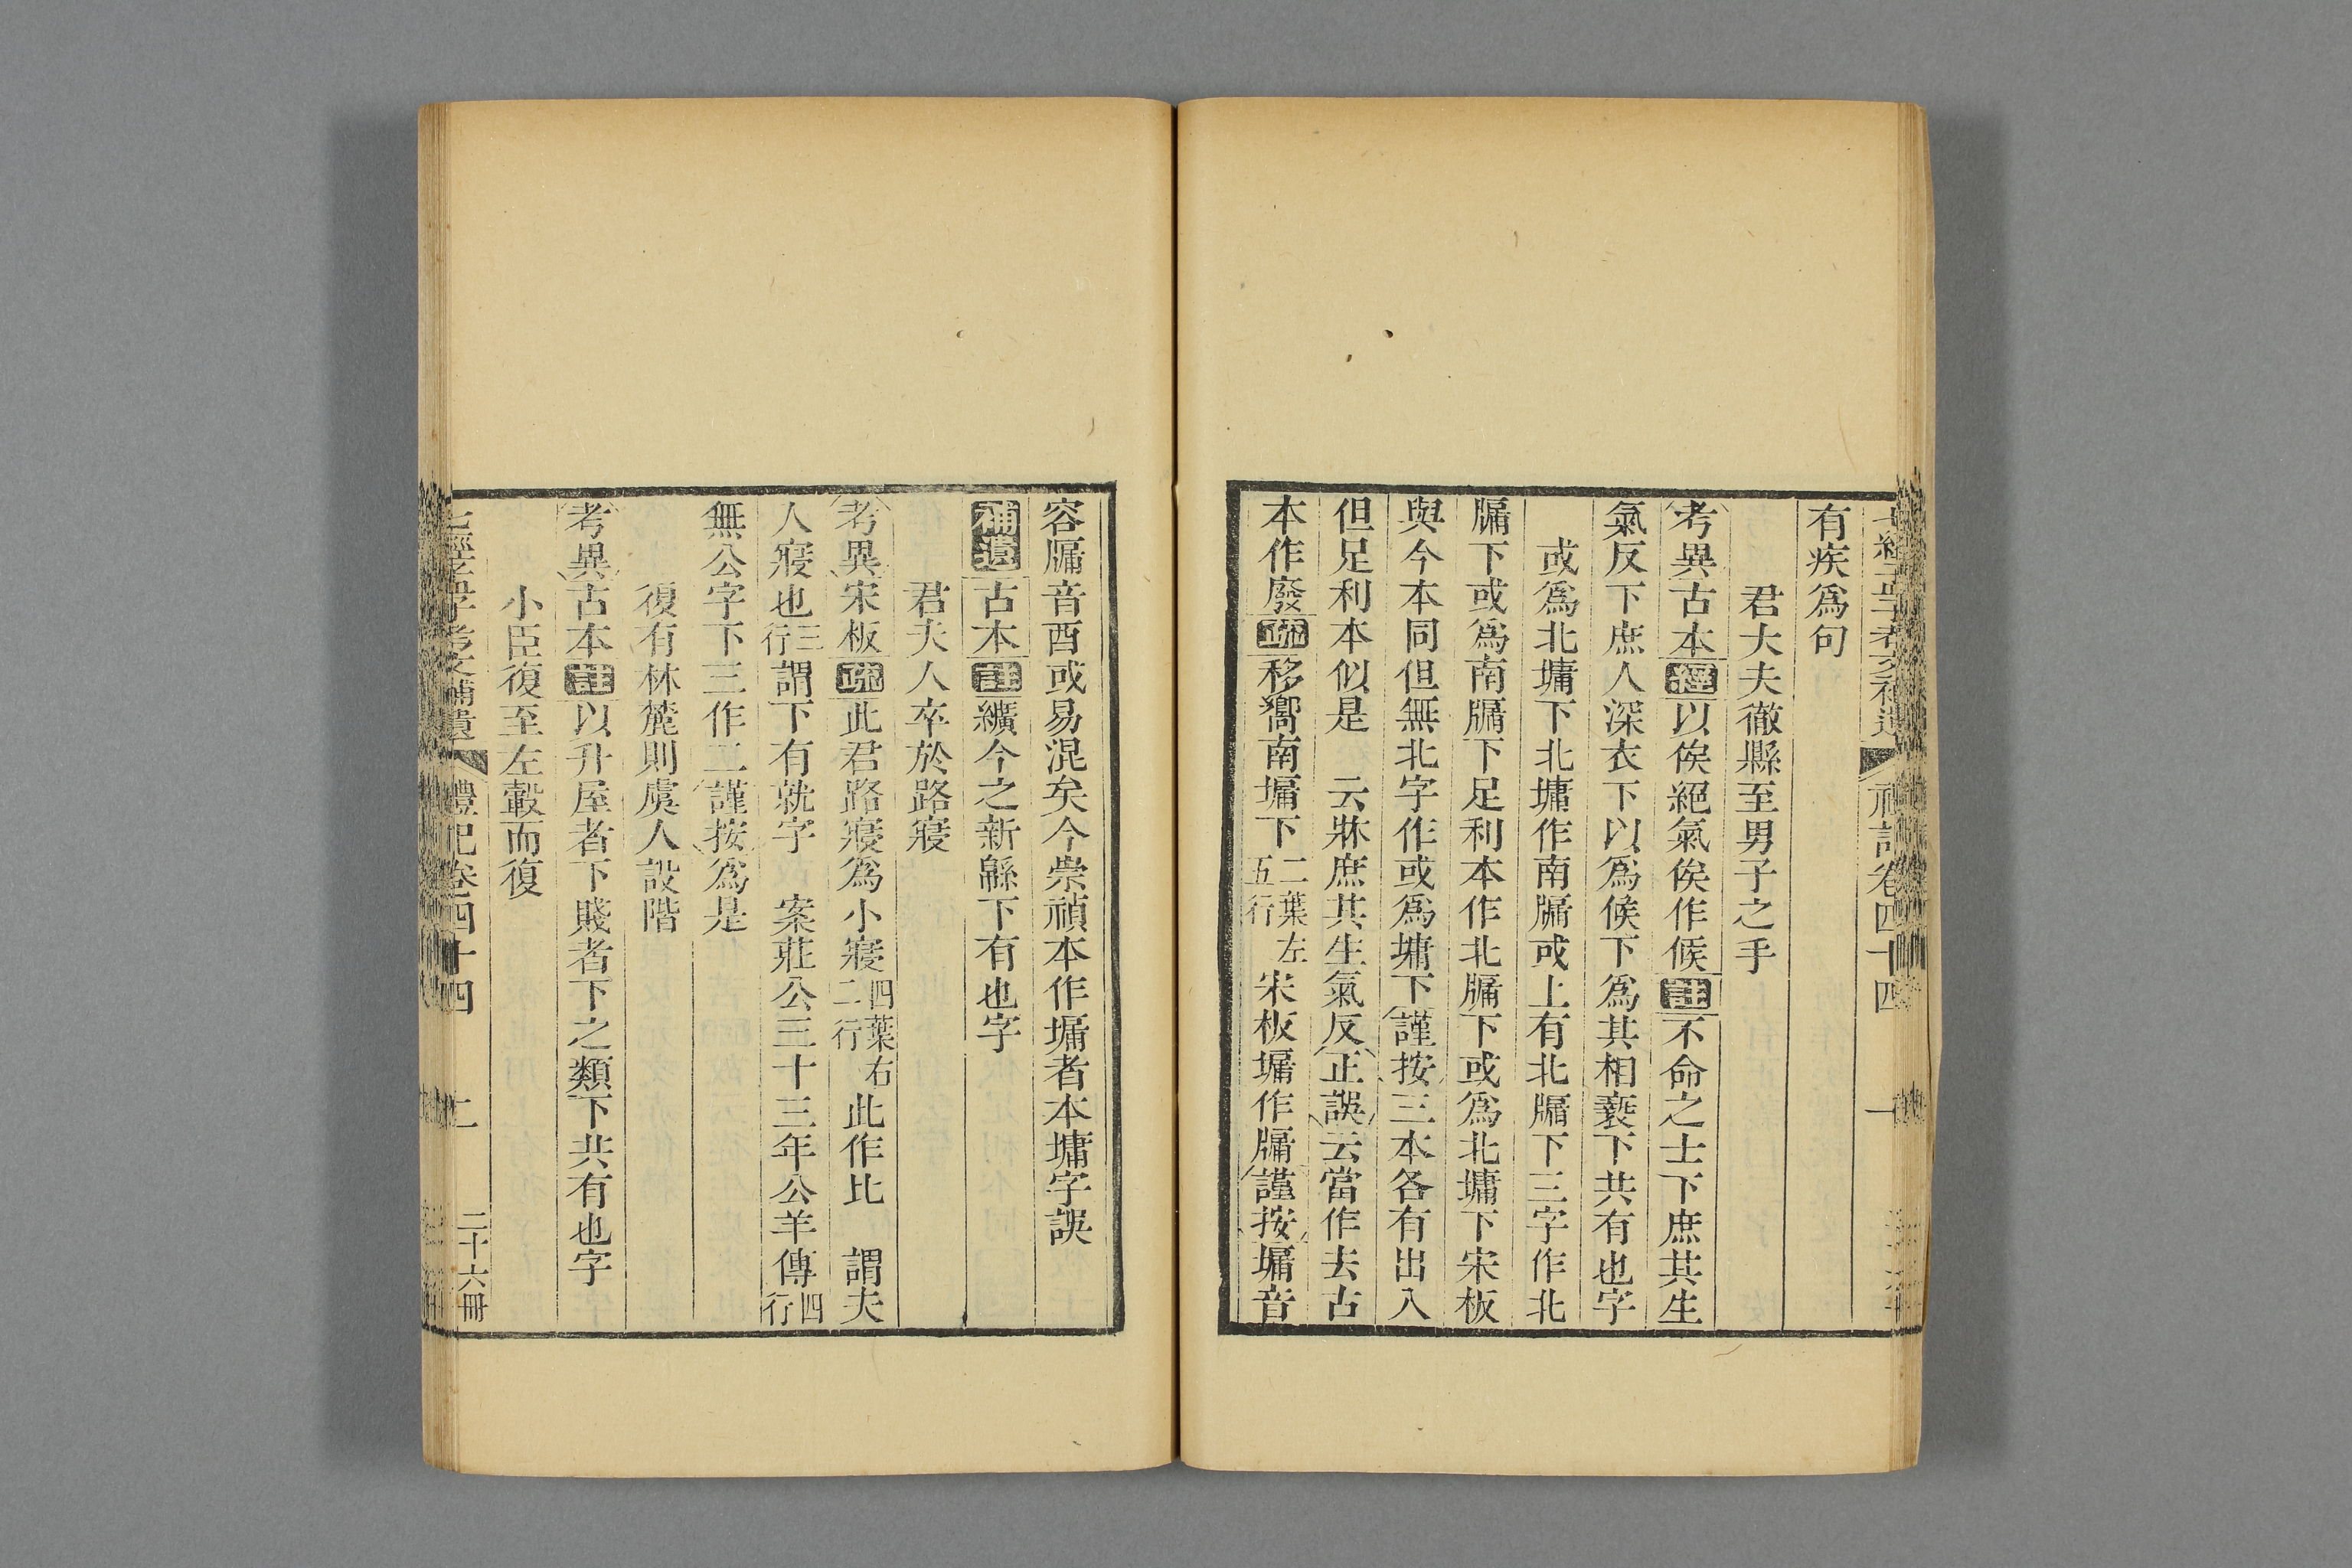 七經孟子考文補遺 禮記卷四十四 一
有疾爲句
君大夫徹縣至男子之手
考異古本經以俟絕氣俟作候註不命之士下庶其生
氣反下庶人深衣下以爲候下爲其相褻下共有也字
或爲北墉下北墉作南牖或上有北牖下三字作北
牖下或爲南牖下足利本作北牖下或爲北墉下宋板
與今本同但無北字作或爲墉下謹按三本各有出入
但足利本似是 云牀庶其生氣反正誤云當作去古
本作廢疏移嚮南墉下二葉左五行宋板墉作牖謹按墉音
容牖音酉或易混矣今崇禎本作墉者本墉字誤
補遺古本註纊今之新緜下有也字
君夫人卒於路寢
考異宋板疏此君路寢爲小寢四葉右二行此作比 謂夫
人寢也三行謂下有就字 案莊公三十三年公羊傳四行
無公字下三作二謹按爲是
復有林麓則虞人設階
考異古本註以升屋者下賤者下之類下共有也字
小臣復至左轂而復
七經孟子考文補遺 禮記卷四十四 二 二十六冊